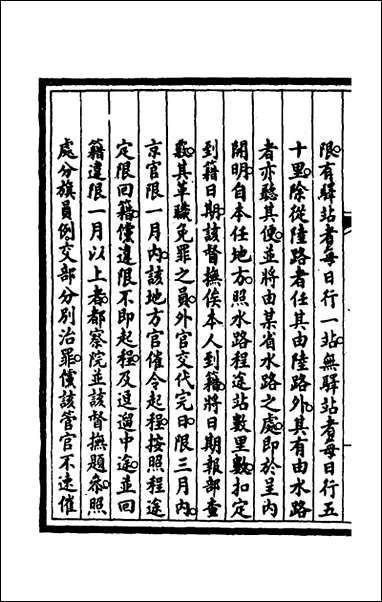 限有驛站者每日行一站無驛站者每日行五
十里除從陸路者任其由陸路外其有由水路
者亦聽其便並將由某省水路之處即於呈內
開明自本任地方照水路程途站數里數扣定
到籍日期該督撫俟本人到籍將日期報部查
覈其革職免罪之員外官交代完日限三月內
京官限一月內該地方官催令起程按照程途
定限回籍儻違限不即起程及逗遛中途並回
籍違限一月以上者都察院並該督撫題叅照
處分旗員例交部分別治罪儻該管官不速催